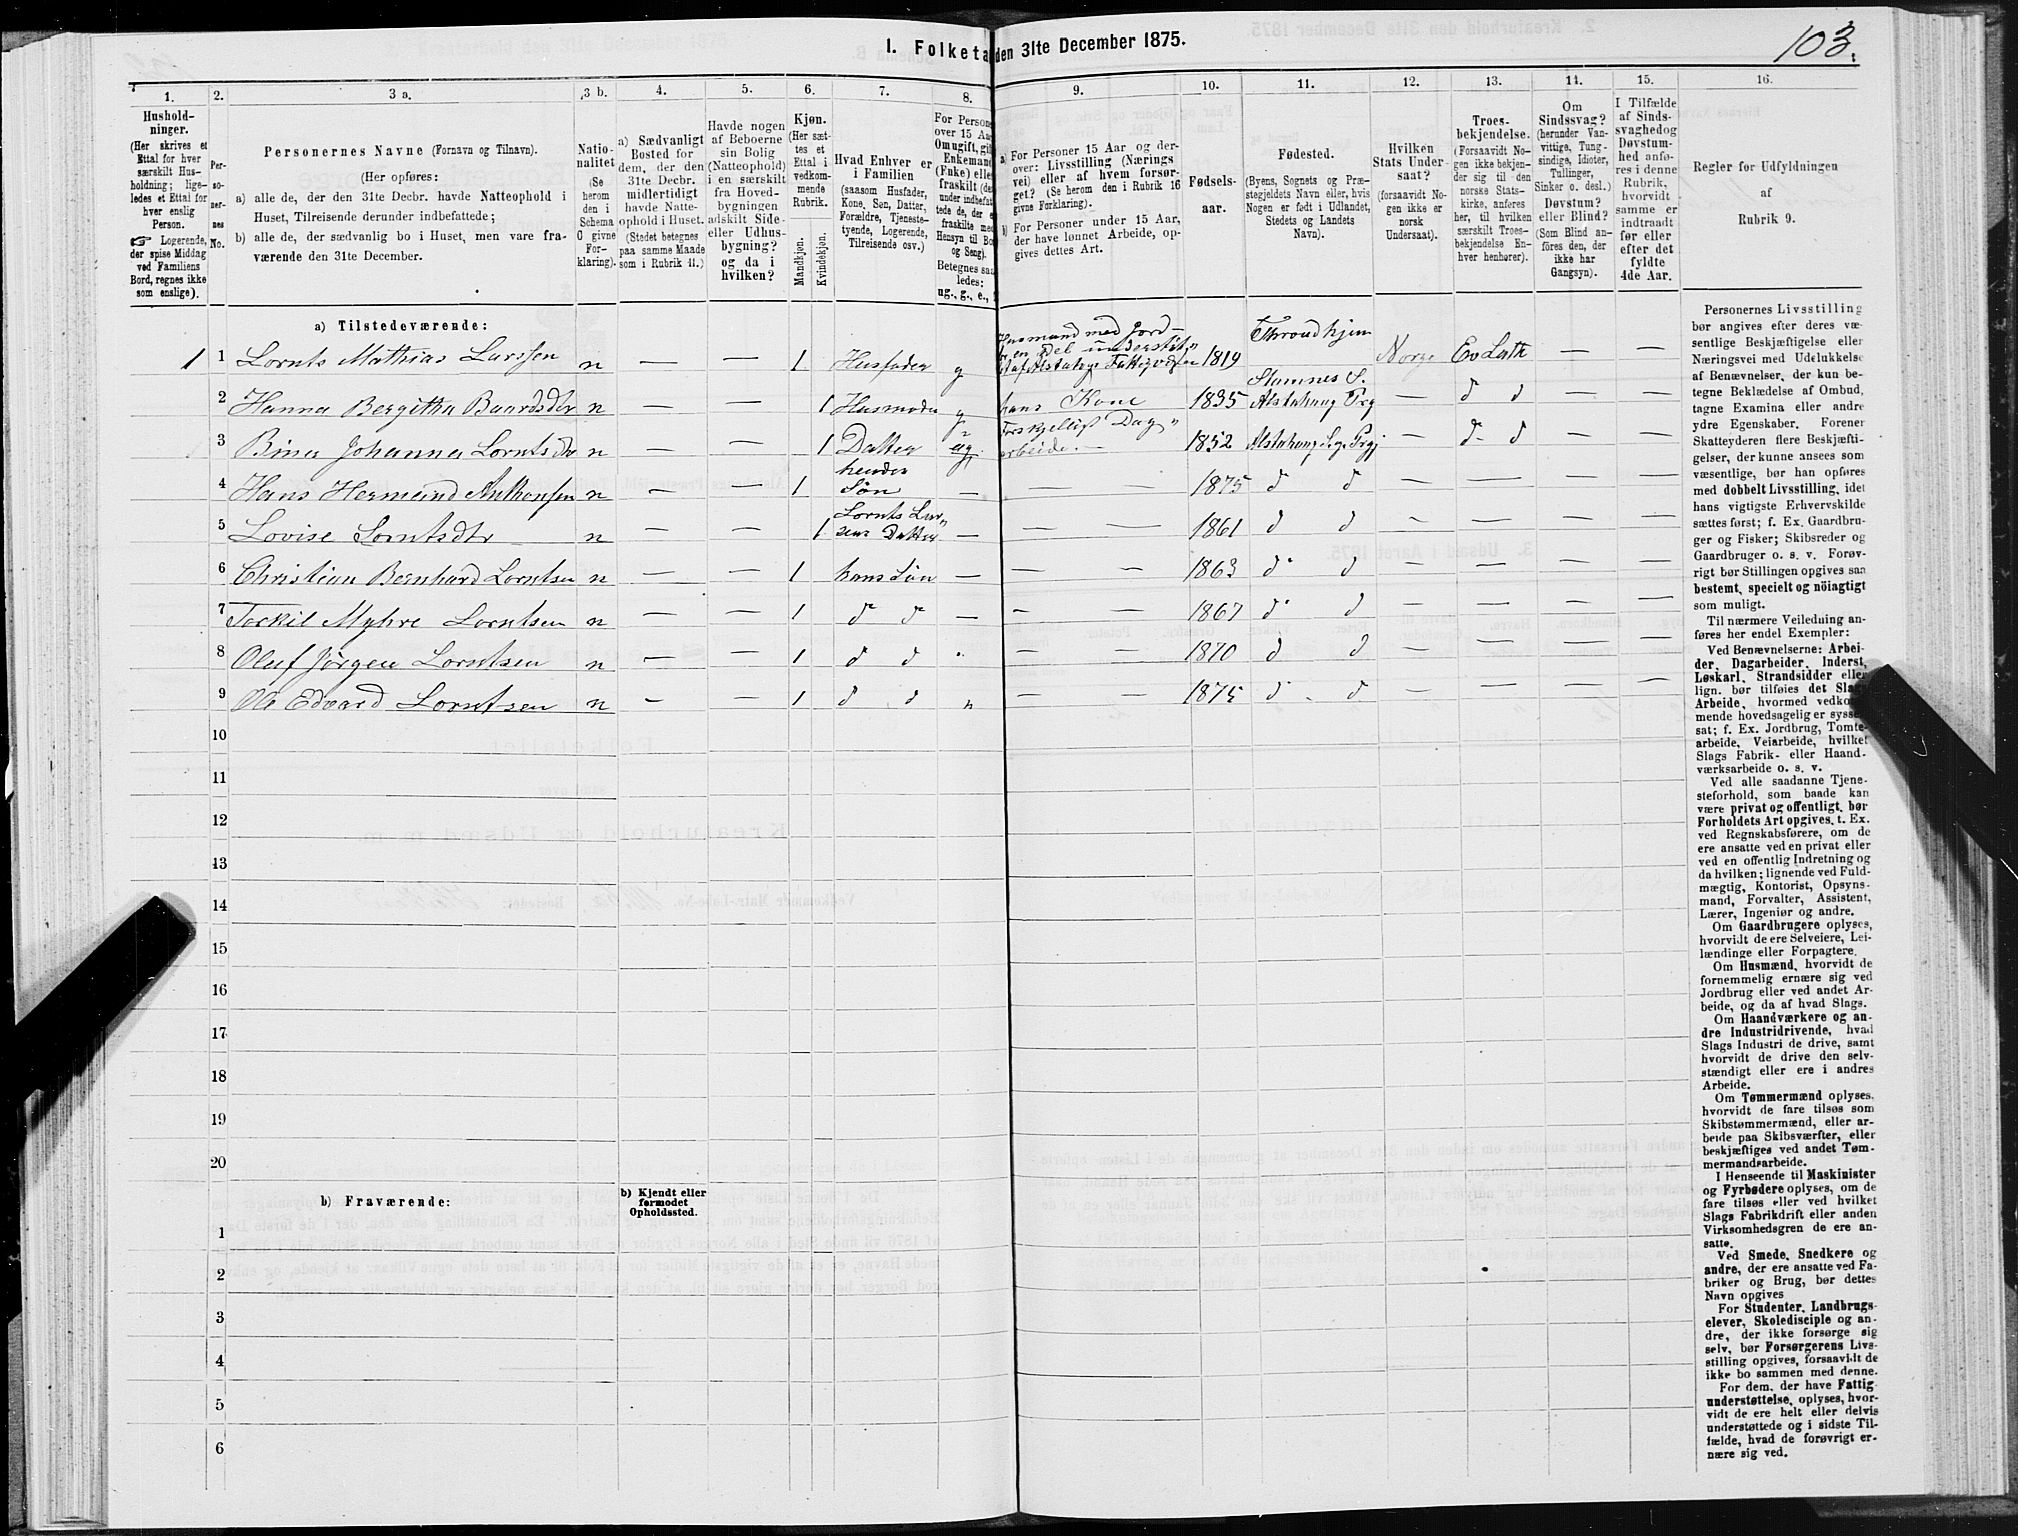 103.
1. Folketa den 31te December 1875.
1. 2. 3 a. 3 b. 4. 5. 6. 7. 8. 9. 10. 11. 12. 13. 14. 15. 16.
Hushold-
ninger.
(Her skrives et
Ettal for hver
særskilt Hus-
holdning; lige-
ledes et Ettal for
hver enslig
Person.
☞ Logerende,
der spise Middag
ved Familiens
Bord, regnes ikke
som enslige).
Per-
so-
ner-
nes
No.
Personernes Navne (Fornavn og Tilnavn).
(Her opføres:
a) alle de, der den 31te Decbr. havde Natteophold i
Huset, Tilreisende derunder indbefattede;
b) alle de, der sædvanlig bo i Huset, men vare fra-
værende den 31te December.
Natio-
nalitet
(Se
herom
den i
Schema
O givne
For-
klaring).
a) Sædvanligt
Bosted for
dem, der den
31te Decbr.
midlertidigt
havde Natte-
ophold i Huset.
(Stedet betegnes
paa samme Maade
som i Rubrik 11.)
Havde nogen
af Beboerne
sin Bolig
(Natteophold)
i en særskilt
fra Hoved-
bygningen
adskilt Side-
eller Udhus-
bygning?
og da i
hvilken?
Kjøn.
(Her sæt-
tes et
Ettal i
vedkom-
mende
Rubrik.
Mandkjøn.
Kvindekjøn.
Hvad Enhver er
i Familien
(saasom Husfader,
Kone, Søn, Datter,
Forældre, Tjeneste-
tyende, Logerende,
Tilreisende osv.)
For Person
over 15 Aa
Omugift, gif
Enkemand
(Enke) elle
fraskilt (de
under indbefat
tede de, der e
fraskilte me
Hensyn til Bo
og Seng).
Betegnes saa
ledes:
ug., g., e.,
a) For Personer 15 Aar og der-
over: Livsstilling (Nærings
vei) eller af hvem forsør-
get? (Se herom den i Rubrik 16
givne Forklaring).
b) For Personer under 15 Aar,
der have lønnet Arbeide, op-
gives dettes Art.
Fødsels-
aar.
Fødested.
(Byens, Sognets og Præ-
stegjeldets Navn eller, hvis
Nogen er født i Udlandet,
Stedets og Landets
Navn).
Hvilken
Stats Under-
saat?
(forsaavidt No-
gen ikke er
norsk
Undersaat).
Troes-
bekjendelse.
(Forsaavidt No-
gen ikke bekjen-
der sig til den
norske Stats-
kirke, anføres
her, til hvilken
særskilt Troes-
bekjendelse En-
hver henhører).
Om
Sindssvag?
(herunder Van-
vittige, Tung-
sindige, Idioter,
Tullinger,
Sinker o. desl.)
Døvstum?
eller Blind?
(Som Blind an-
føres den, der
ikke har
Gangsyn).
I Tilfælde
af Sinds-
svaghedog
Døvstum-
hed anfø-
res i denne
Rubrik,
hvorvidt
samme er
indtraadt
før eller
efter det
fyldte
4de Aar.
Regler for Udfyldningen
af
Rubrik 9.
a) Tilstedeværende:
1 1 Lornts Mathias Larssen n 1 Husfader g Husmand med Jord en Del understøt af Alstahoug Fattigvæsen 1819 Throndhjem Norge Ev Luth — —
2 Hanna Bergitha Baardsdtr n — — 1 Husmoder g hans Kone 1835 Stamnes S. Alstahoug Prg — d d
3 Bina Johanna Lorntsdtr n — — 1 Datter ug Forskjelligt Dag" arbeide. — 1852 Alstahoug S. g. Prgj — d — d — —
4 Hans Hermand Anthonsen n — — 1 hendes Søn — — — 1875 d d — — — —
5 Lovise Lorntsdtr n — — 1 Lornts Lar" sens Datter — — — 1861 d d — — — —
6 Christian Bernhard Lorntsen n — — 1 hans Søn — — — 1863 d d — — — —
7 Torkil Myhre Lorntsen n — — 1 d d — — — 1867 d d — — — —
8 Oluf Jørgen Lorntsen n — — 1 d d " — — 1870 d d — — — —
9 Ole Edvard Lorntsen n — — 1 d d " — — 1875 d d — — — —
10
11
12
13
14
15
16
17
18
19
20
b) Fraværende:
b) Kjendt eller
formodet
Opholdssted.
1
2
3
4
5
6
Personernes Livsstilling
bør angives efter deres væ-
sentlige Beskjæftigelse eller
Næringsvei med Udelukkelse
af Benævnelser, der kun be-
tegne Beklædelse af Ombud,
tagne Examina eller andre
ydre Egenskaber. Forener
Skatteyderen flere Beskjæfti-
gelser, der kunne ansees som
væsentlige, bør han opføres
med dobbelt Livsstilling, idet
hans vigtigste Erhvervskilde
sættes først; f. Ex. Gaardbru-
ger og Fisker; Skibsreder og
Gaardbruger o. s. v. Forøv-
rigt bør Stillingen opgives saa
bestemt, specielt og nöiagtigt
som muligt.
Til nærmere Veiledning an-
føres her endel Exempler:
Ved Benævnelserne: Arbei-
der, Dagarbeider, Inderst,
Løskarl, Strandsidder eller
lign. bør tilføies det Slags
Arbeide, hvormed vedkom-
mende hovedsagelig er syssel
sat; f. Ex. Jordbrug, Tomte-
arbeide, Veiarbeide, hvilket
Slags Fabrik- eller Haand-
værksarbeide o. s. v.
Ved alle saadanne Tjene-
steforhold, som baade kan
være privat og offentligt, bør
Forholdets Art opgives, t. Ex.
ved Regnskabsførere, om de
ere ansatte ved en privat eller
ved en offentlig Indretning og
da hvilken; lignende ved Fuld-
mægtig, Kontorist, Opsyns-
mand, Forvalter, Assistent,
Lærer, Ingeniør og andre.
Om Gaardbrugere oplyses,
hvorvidt de ere Selveiere, Lei-
lændinge eller Forpagtere.
Om Husmænd, hvorvidt de
fornemmelig ernære sig ved
Jordbrug eller ved andet Ar-
beide, og da af hvad Slags.
Om Haandværkere og an-
dre Industridrivende, hvad
Slags Industri de drive, samt
hvorvidt de drive den selv-
stændigt eller ere i andres
Arbeide.
Om Tømmermænd oplyses,
hvorvidt de fare tilsøs som
Skibstømmermænd, eller ar-
beide paa Skibsværfter, eller
beskjæftiges ved andet Tøm-
mermandsarbeide.
I Henseende til Maskinister
og Fyrbødere oplyses, om de
fare tilsøs eller ved hvilket
Slags Fabrikdrift eller anden
Virksomhedsgren de ere an-
satte.
Ved Smede, Snedkere og
andre, der ere ansatte ved Fa-
briker og Brug, bør dettes
Navn opgives
For Studenter, Landbrugs-
elever, Skoledisciple og an-
dre, der ikke forsørge sig
selv, bør Forsørgerens Livs-
stilling opgives, forsaavidt de
ikke bo sammen med denne.
For dem, der have Fattig-
understøttelse, oplyses, hvor-
vidt de ere helt eller delvis
understøttede og i sidste Til-
fælde, hvad de forøvrigt er-
nære sig ved.